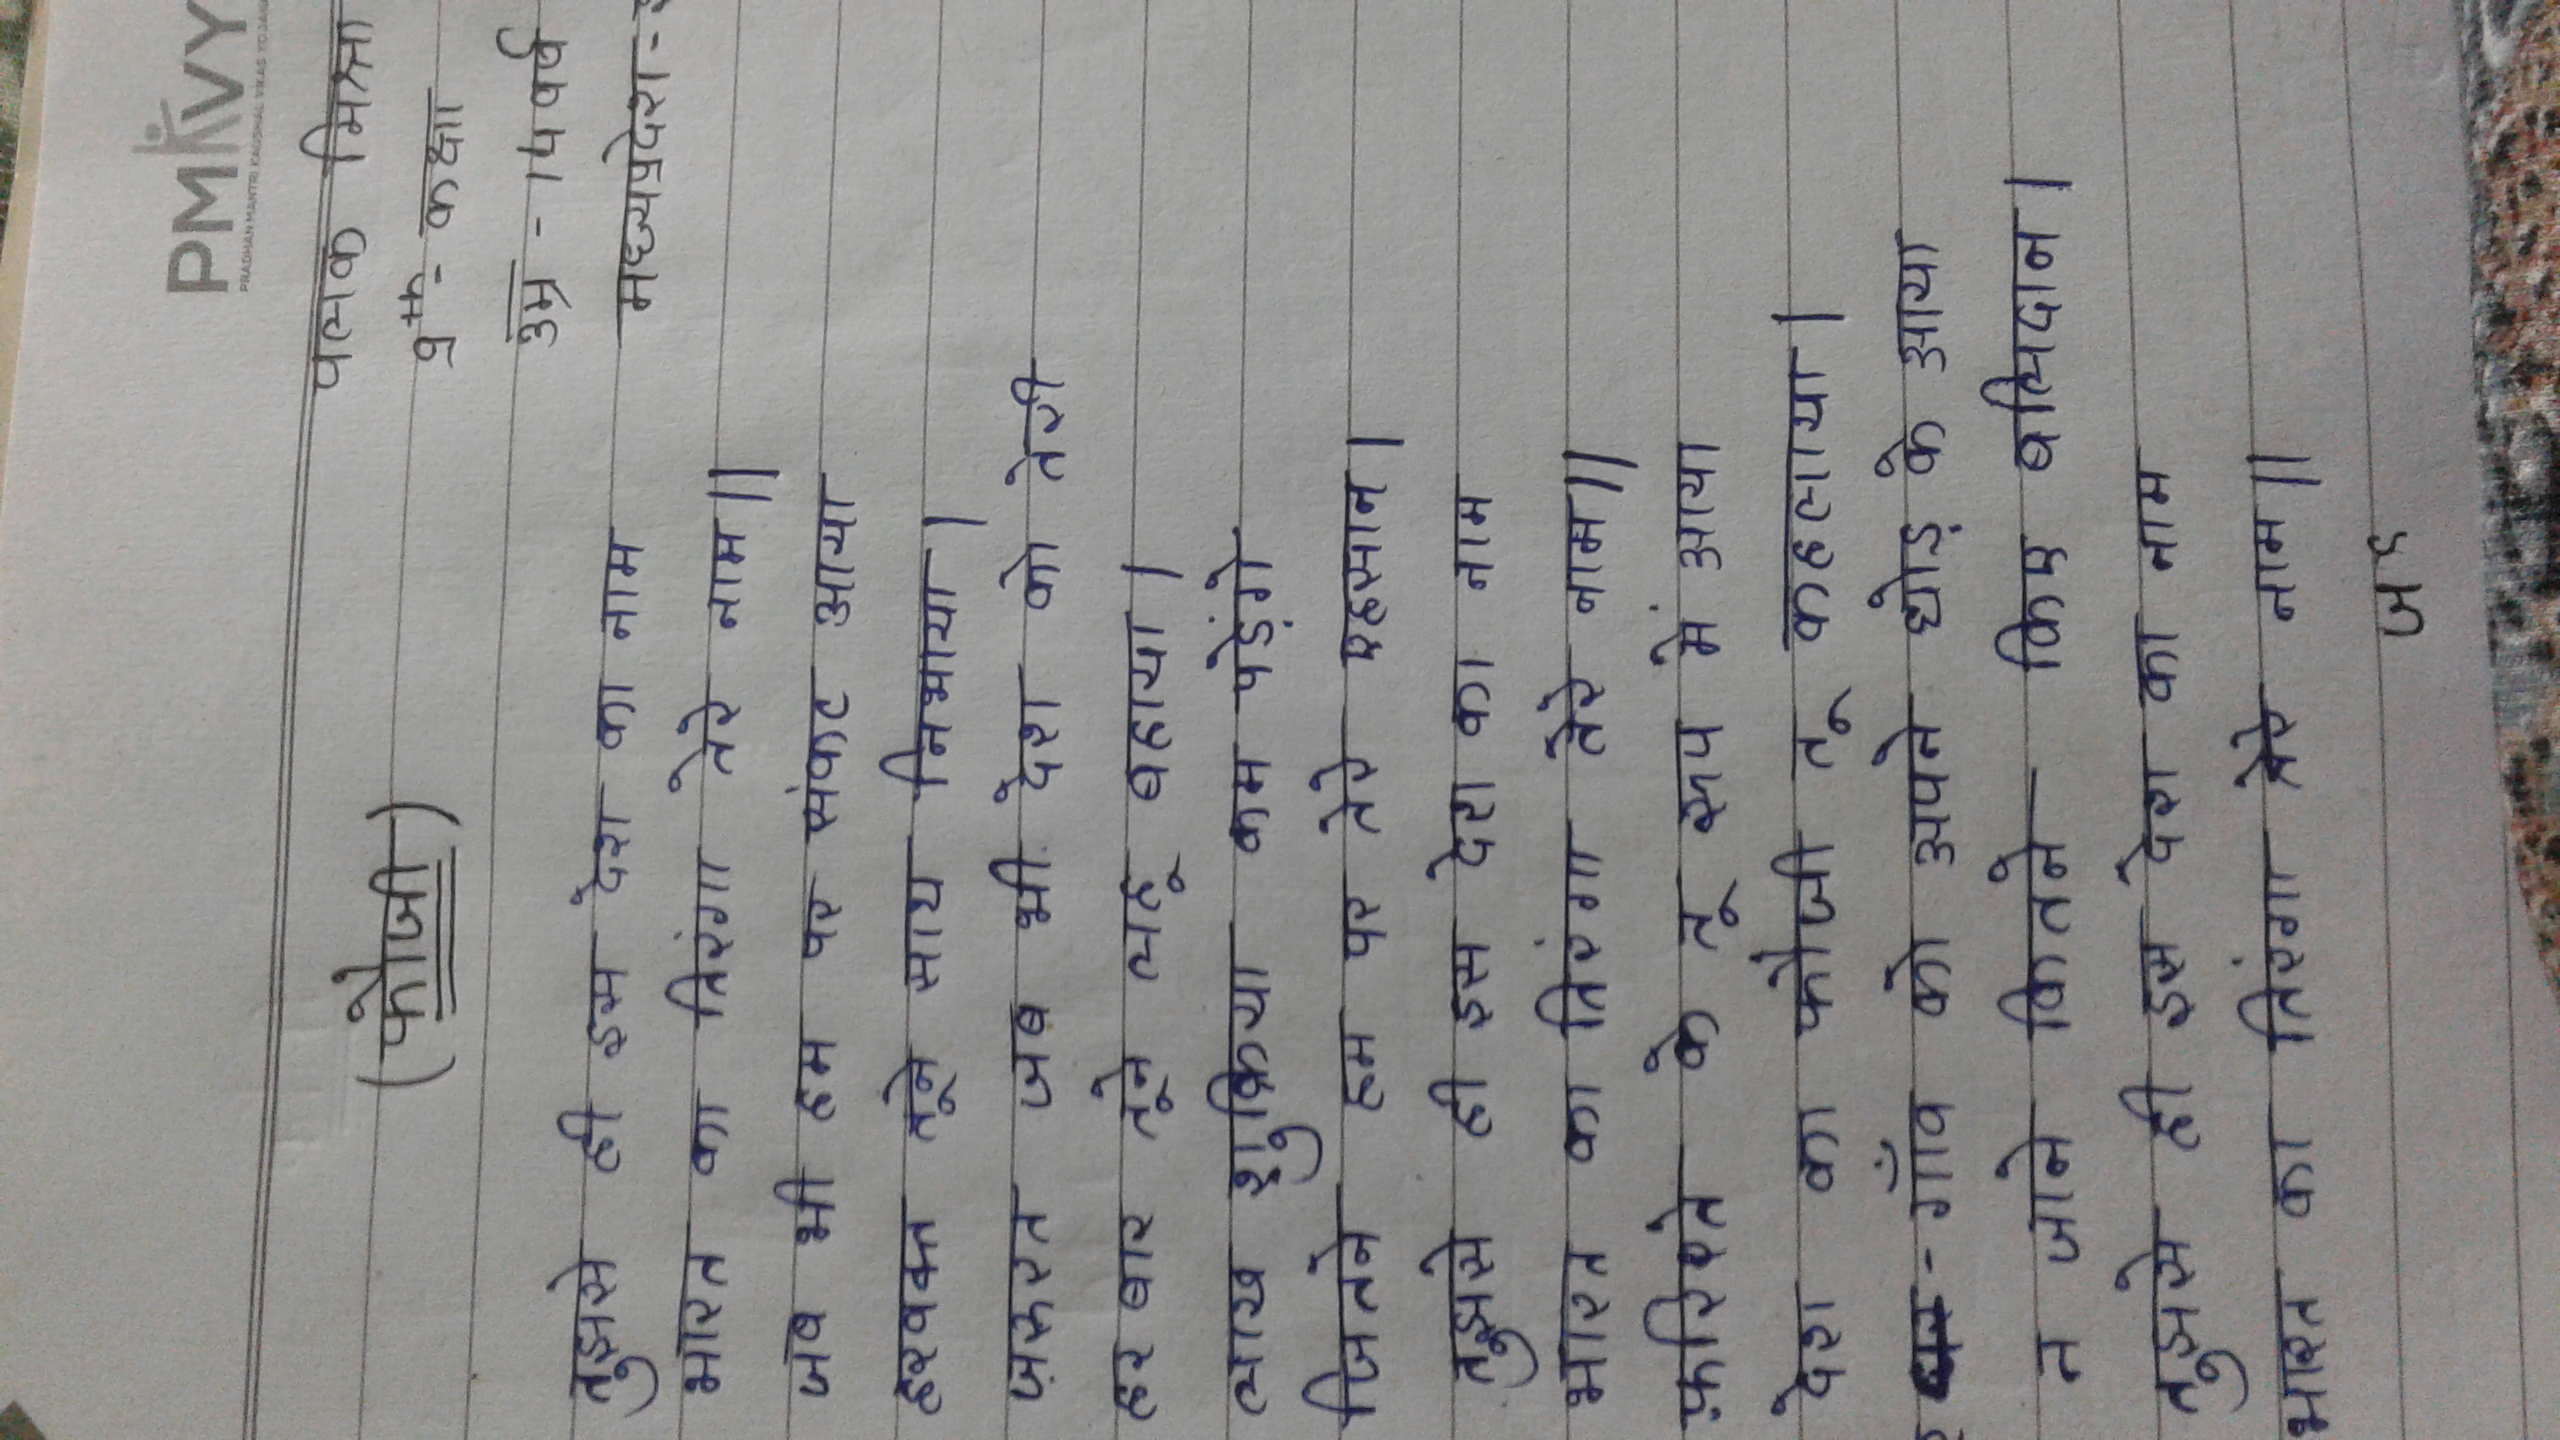 PMKVY
PRADHAN MANTRI KAUSHAL VIKAS YOJANA
पलक मिश्रा
9th - कक्षा
उम्र - 14 वर्ष
मध्यप्रदेश -
(फोजी)
तुझसे ही इस देश का नाम
भारत का तिरंगा तेरे नाम ||
जब भी हम पर संकट आया
हरवक्त तूने साथ निभाया |
ज़रूरत जब भी देश को तेरी
हर बार तूने लहू बहाया |
लाख शुक्रिया कम पेड़ंगे
जितने हम पर तेरे एहसान |
तुझसे ही इस देश का नाम
भारत का तिरंगा तेरे नाम ||
फ़रिश्ते के तू रूप में आया
देश का फोजी तू कहलाया |
गाँव को अपने छोड़ के आया
न जाने कितने किए बलिदान |
तुझसे ही इस देश का नाम
भारत का तिरंगा तेरे नाम ||